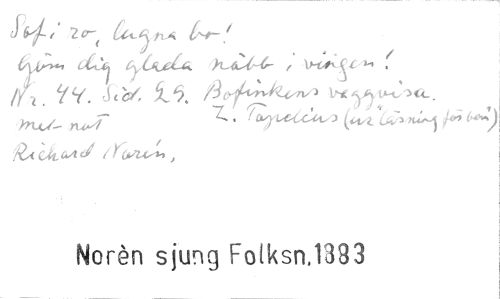 Sof i ro, lugna bo!
Göm dig glada näbb i vingen!
Nr. 44. Sid. 29. Bofinkens vaggvisa.
met-not Z. Topelius (ur "Läsning för barn")
Richard Norén,
Norèn sjung Folksn,1883